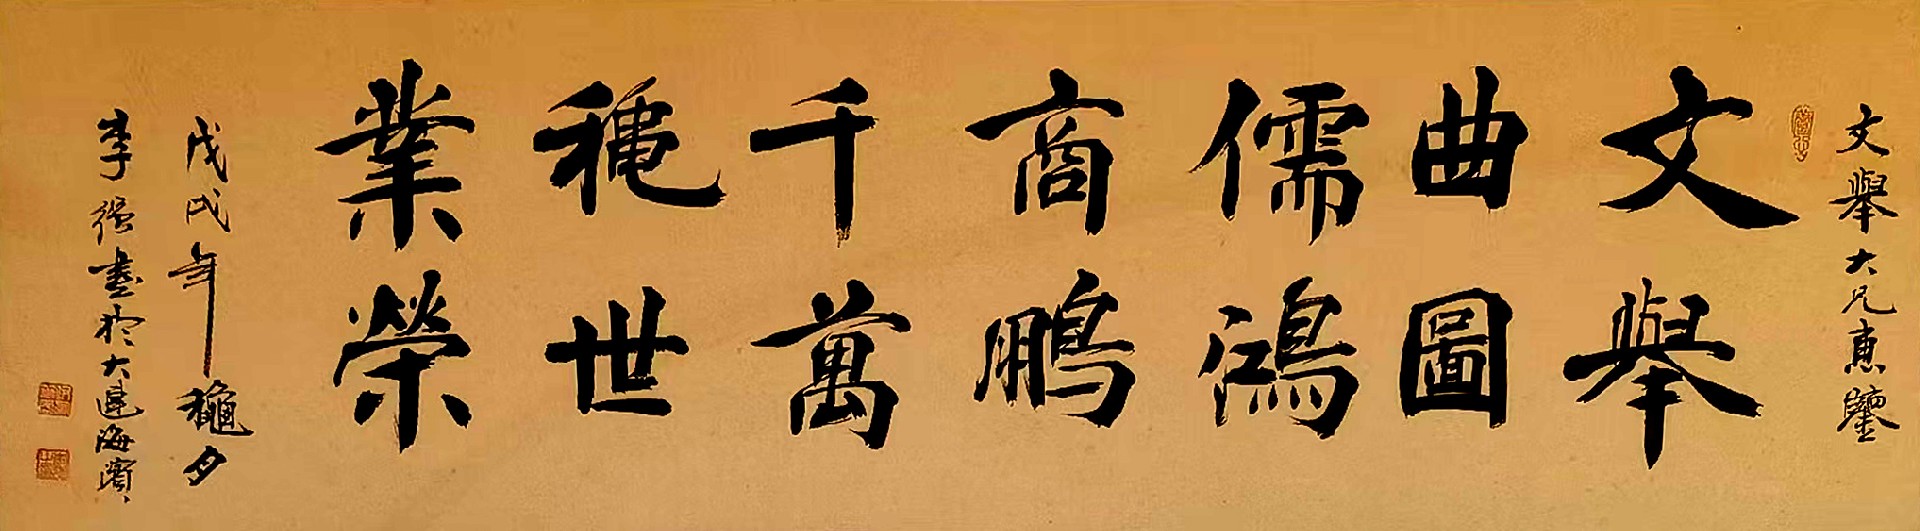 文舉大兄惠鑒
文舉
曲圖
儒鴻
商鵬
千萬
穐世
業榮
戊戌年龝夕
李強書於大連海濱